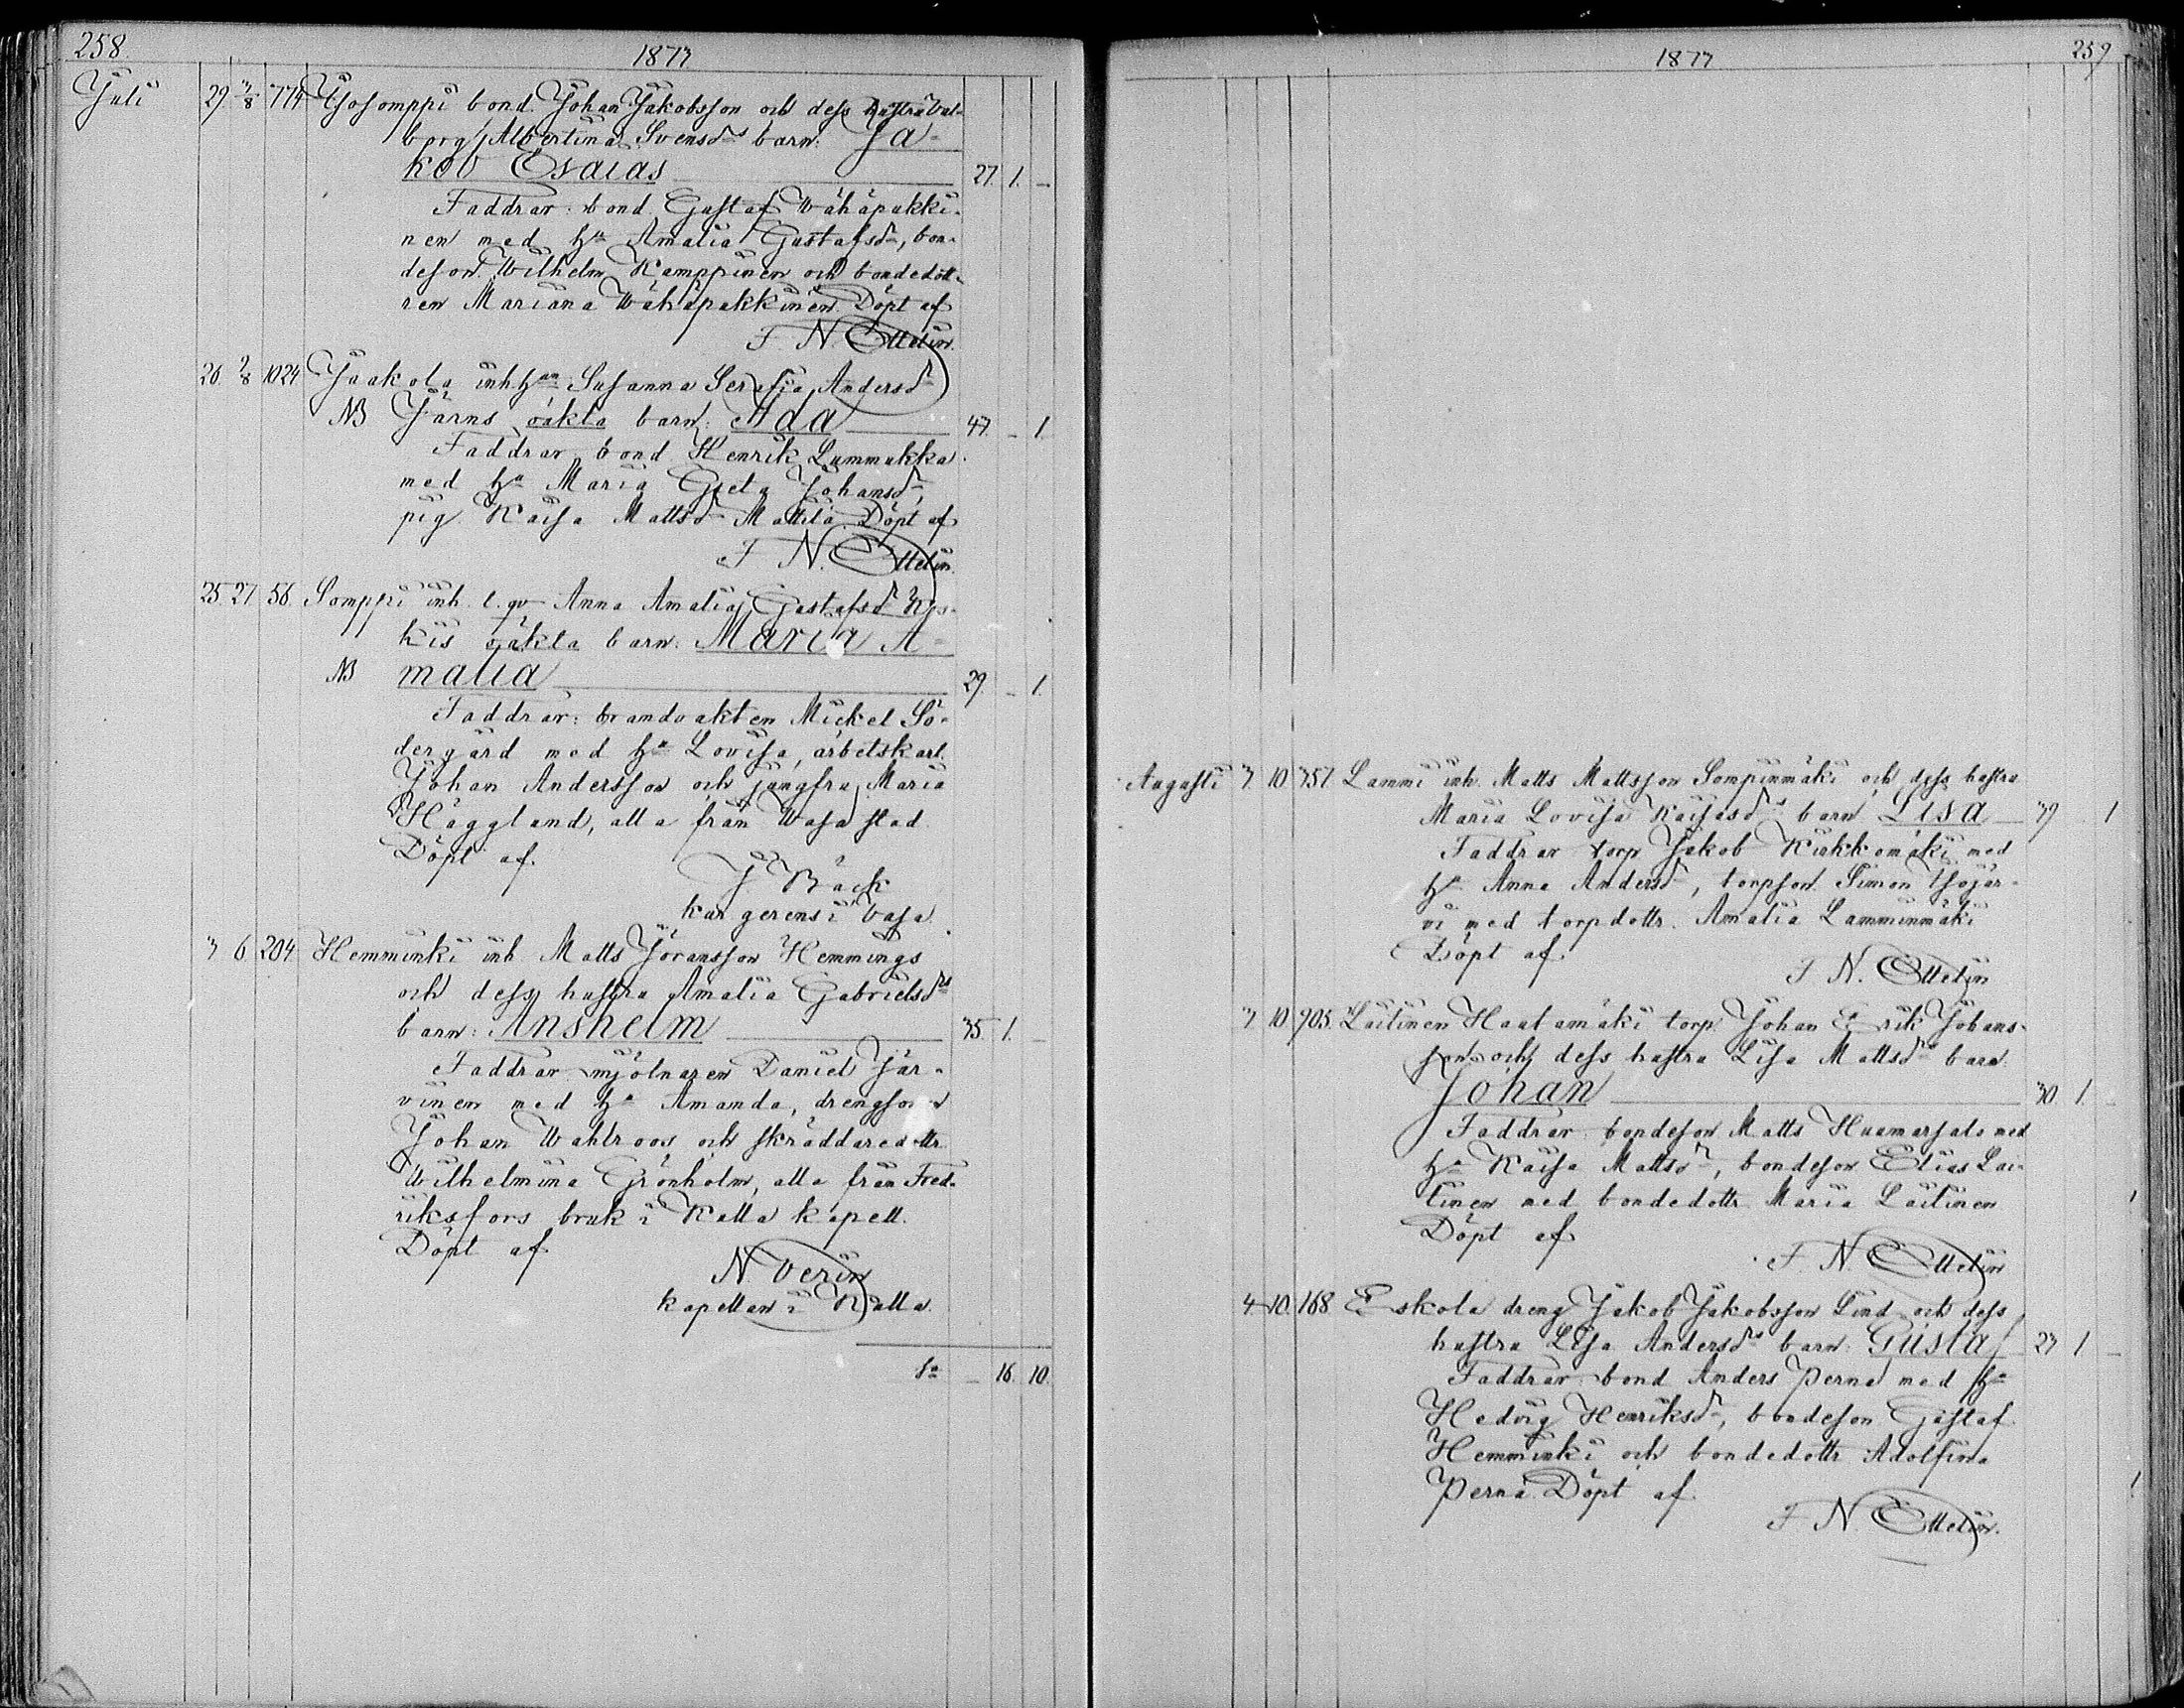 258.
1873
Juli 29 3/8 774 Isosomppi bond. Johan Jakobsson och dess hustru Val-
borg Albertina Svensdrs barn: Ja-
kob Esaias 27. 1. –
Faddrar: bond. Gustaf Wähäpakki-
nen med ha Amalia Gustafsdr, bon-
deson Wilhelm Kamppinen och bondedott-
ren Mariana Wähäpakkinen. Döpt af
F. N. Ottelin.
26. 9/8 1024 Jaakola inhhan Susanna Serafia Andersdr
NB Järns oäkta barn: Ada 47. – 1.
Faddrar: bond Henrik Lummukka
med ha Maria Greta Johansdr,
pig. Kaisa Mattsdr Mattila. Döpt af
F. N. Ottelin.
25. 27 56. Somppi inh. l. qv Anna Amalia Gustafsdr
kis oäkta barn: Maria A-
NB malia 29. – 1.
Faddrar: brandvakten Mickel Sö-
dergård med ha Lovisa, arbetskarl.
Johan Andersson och jungfru Maria
Häggland, alla från Wasa stad.
Döpt af.
J Back
kur gerens i Vasa.
3 6 204. Hemminki inh. Matts Göransson Hemmings
och dess hustru Amalia Gabrielsdrs
barn: Anshelm 35. 1. –
Faddrar: mjölnaren Daniel Jär-
vinen med ha Amanda, drengson
Johan Wahlroos och skräddaredottr.
Wilhelmina Grönholm, alla från Fred-
riksfors bruk i Kalla kapell.
Döpt af
N. Verin
kapellan i Kalla.
Sa – 16. 10.
1873
259
Augusti 3. 10 351. Lammi inh. Matts Mattsson Sompinmäki och dess hustru
Maria Lovisa Kaisasdrs barn Lisa 39 – 1
Faddrar torp Jakob Kiikkomäki med
ha Anna Andersdr, torpson Simon Isojär-
vi med torpdottr. Amalia Lamminmäki
Döpt af.
F. N. Ottelin
3 10 905. Laitinen Haatamäki torp. Johan Erik Johans-
son och dess hustru Lisa Mattsdrs barn:
Johan 30. 1. –
Faddrar: bondeson Matts Huumarsalo med
ha Kaisa Mattsdr, bondeson Elias Lai-
tinen med bondedottr Maria Laitinen
Döpt af
F. N. Ottelin
4 10. 168 Eskola dreng Jakob Jakobsson Lind och dess
hustru Lisa Andersdrs barn: Gustaf 23 1 –
Faddrar: bond Anders Perna med ha
Hedvig Henriksdr, bondeson Gustaf
Hemminki och bondedottr Adolfina
Perna. Döpt af
F N. Ottelin.